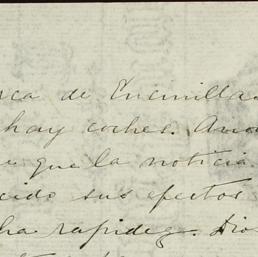 rca de Encinilla
hay coches. Ano
e que la noticia
cido sus efectos
ha rapidez. Dio